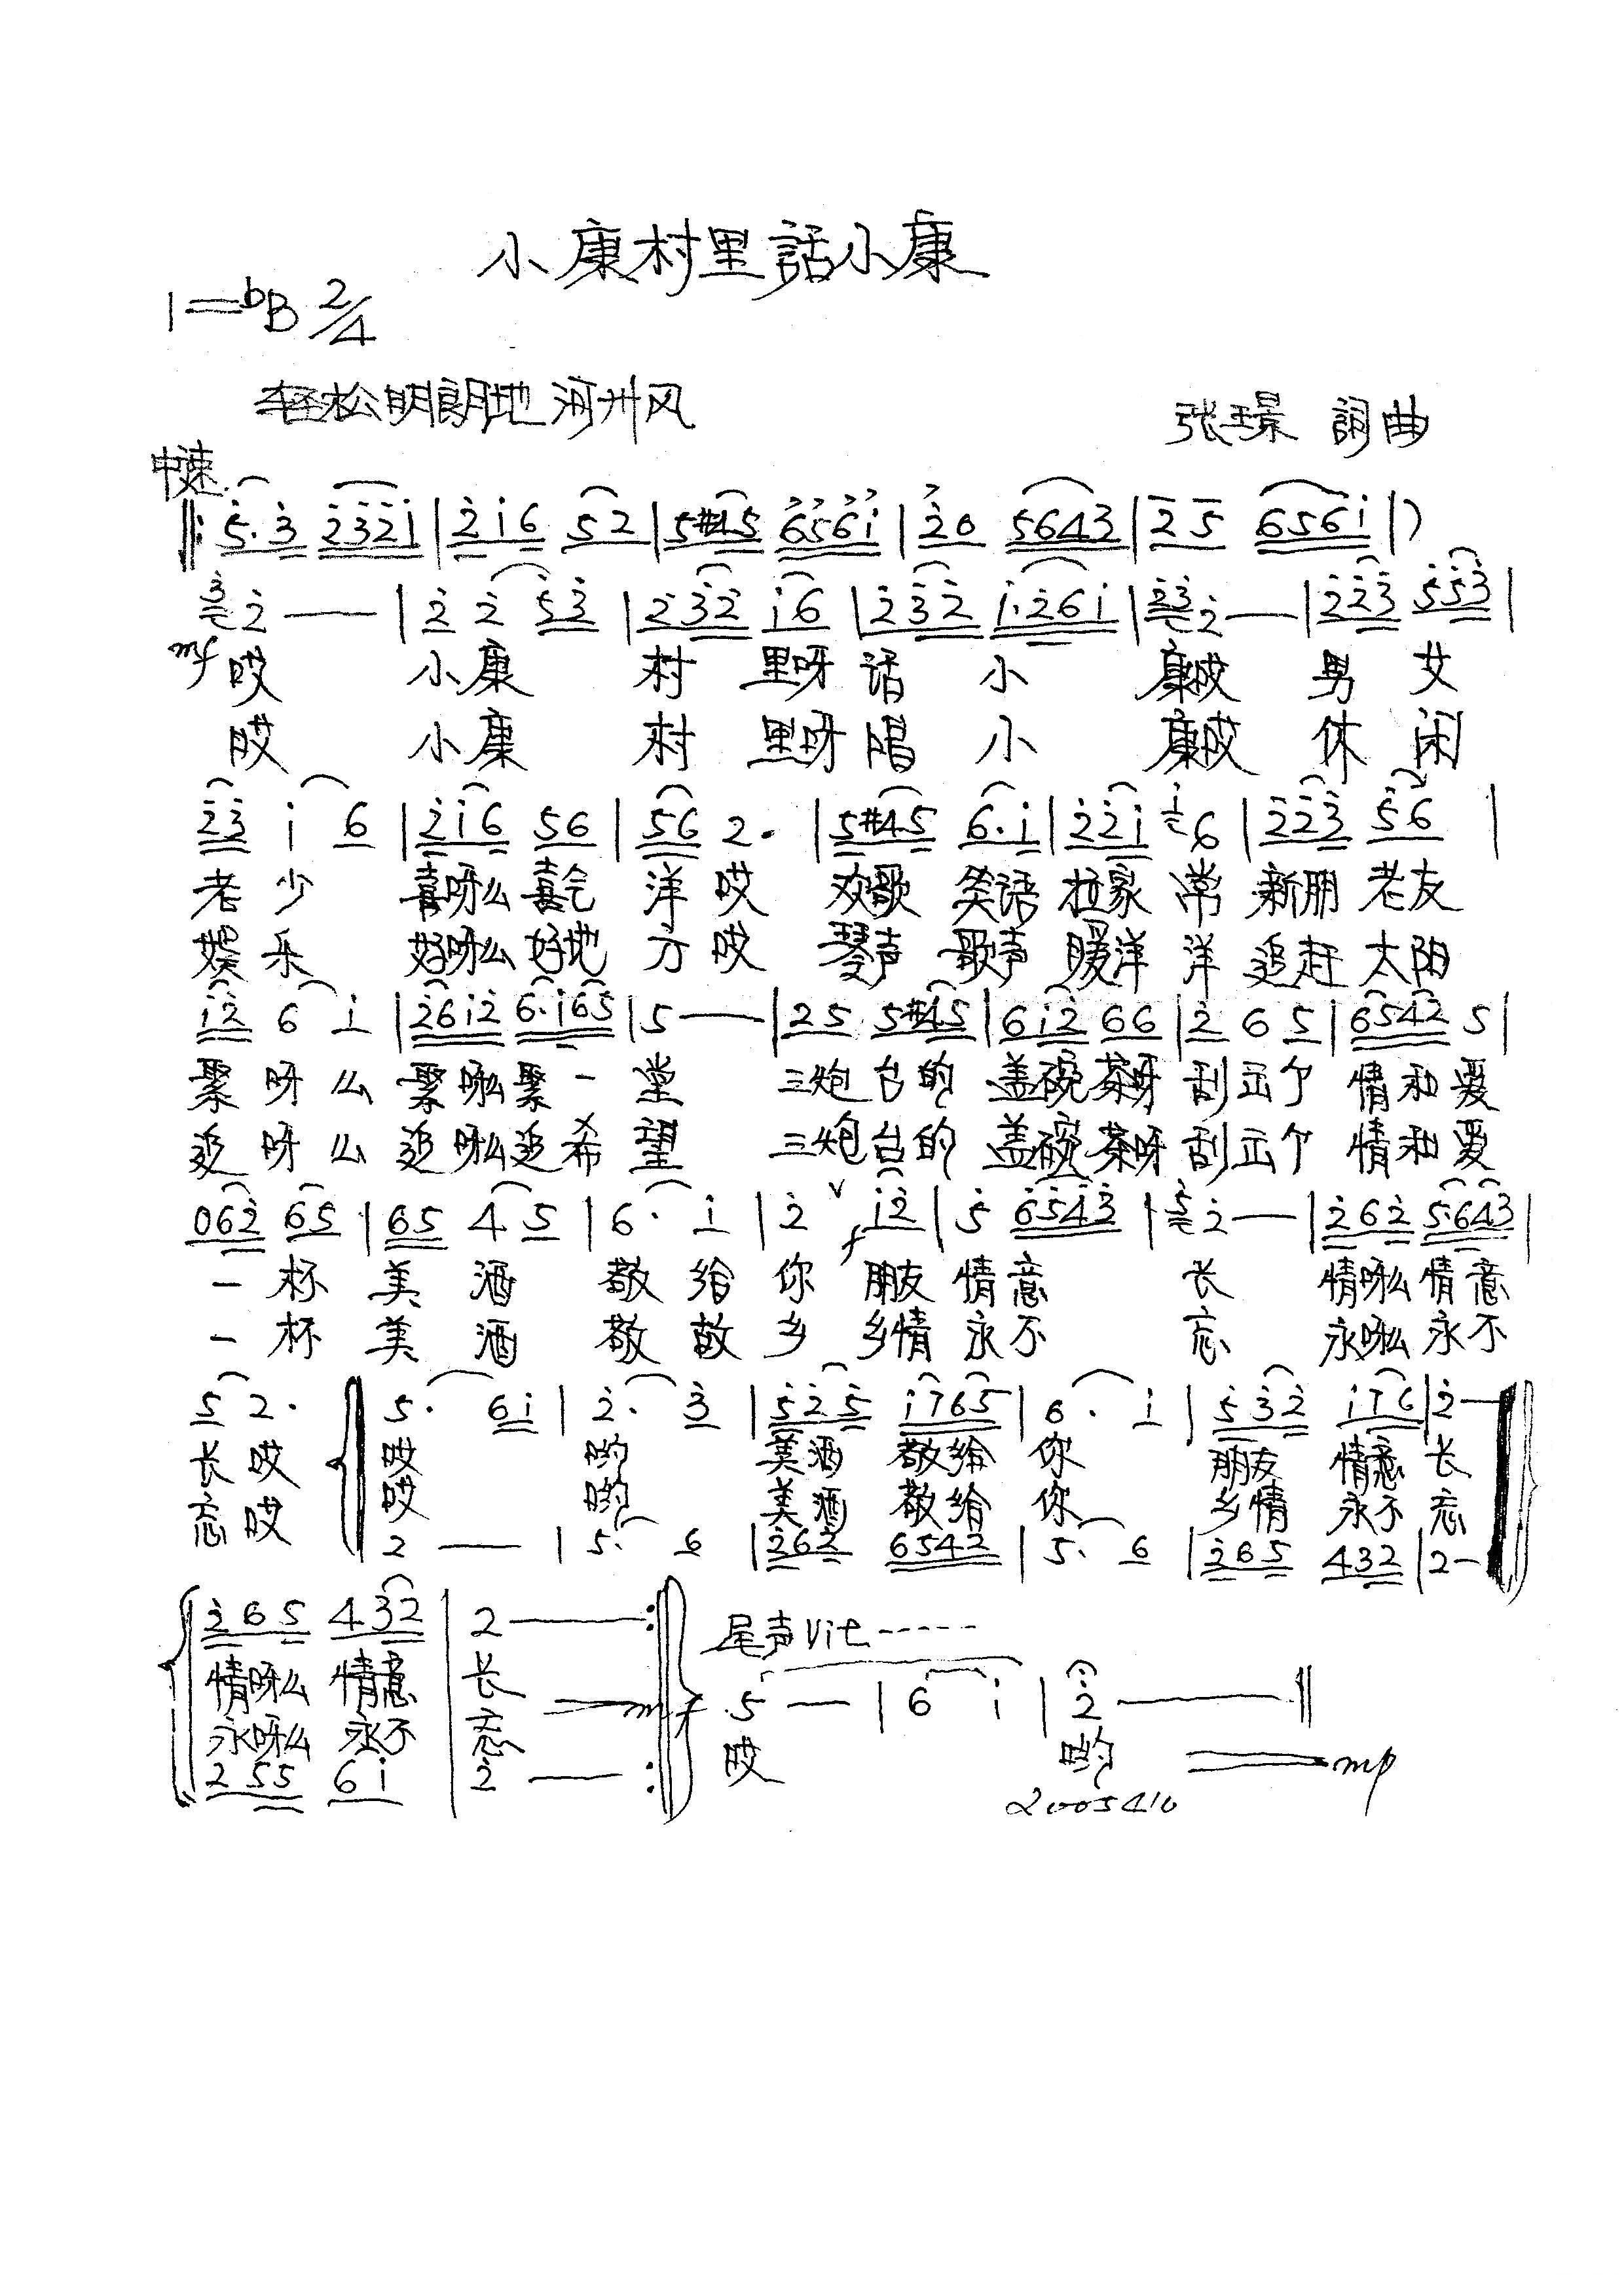 小康村里話小康
1=bB 2/4
轻松明朗地 河州风
张璟 詞曲
中速
‖: 5·3 2321 | 216 52 | 5#45 6561 | 20 5643 | 25 6561 | )
3 2 — | 2 2 53 | 232 16 | 232 1·261 | 23 2 — | 223 553 |
mf 哎 小康 村 里呀 话 小 康哎 男 女
哎 小康 村 里呀 唱 小 康哎 休 闲
23 1 6 | 216 56 | 56 2· | 5#45 6·1 | 221 1 6 | 223 56 |
老 少 喜呀么 喜气 洋 哎 欢歌 笑语 拉家 常 新朋 老友
娱 乐 好呀么 好地 方 哎 琴声 歌声 暖洋 洋 追赶 太阳
12 6 1 | 2612 6·165 | 5 — | 25 5#45 | 612 66 | 2 6 5 | 6542 5 |
聚 呀 么 聚呀么聚 一 堂 三炮 台的 盖碗 茶呀 刮 个 情 和 爱
追 呀 么 追呀么追 希 望 三炮 台的 盖碗 茶呀 刮 个 情 和 爱
062 65 | 65 4 5 | 6· 1 | 2 ∨ f 12 | 5 6543 | 5 2 — | 262 5·643 |
一 杯 美 酒 敬 给 你 朋友 情 意 长 情呀么 情 意
一 杯 美 酒 敬 故 乡 乡情 永 不 忘 永呀么 永 不
5 2· 5· 61 | 2· 3 | 525 1765 | 6· 1 | 532 176 | 2 —
长 哎 哎 哟 美酒 敬给 你 朋友 情意 长
忘 哎 哎 哟 美酒 敬给 你 乡情 永不 忘
2 — | 5· 6 | 262 6542 | 5· 6 | 265 432 | 2 —
265 432 | 2 — :‖ 尾声 rit -----
情呀么 情意 长 mf 5 — | 6 1 | 2 — ‖
永呀么 永不 忘 哎 哟 mp
255 61 | 2 — :‖
2005410